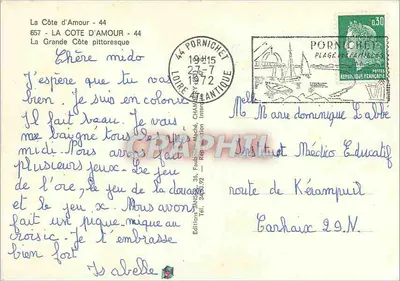 La Côte d'Amour - 44
657 - LA COTE D'AMOUR - 44
La Grande Côte pittoresque
Chère mido
J'espère que tu vas
bien. Je suis en colonie
Il fait beau. Je vais
me baigné tous les après
midi. Nous avons fait
plusieurs jeux. Le jeu
de l'ore, le jeu de la douane
et le jeu x. Nous avons
fait un pique-nique au
croisic. Je t'embrasse
bien fort
Isabelle
44 PORNICHET
19H15
27-7
1972
LOIRE ATLANTIQUE
PORNICHET
PLAGE
0,30
REPUBLIQUE FRANÇAISE
POSTES
Melle Marie dominique Labbé
Institut Médico Educatif
route de Kérampuil
Carhaix 29.N.
CARTHAPHIL